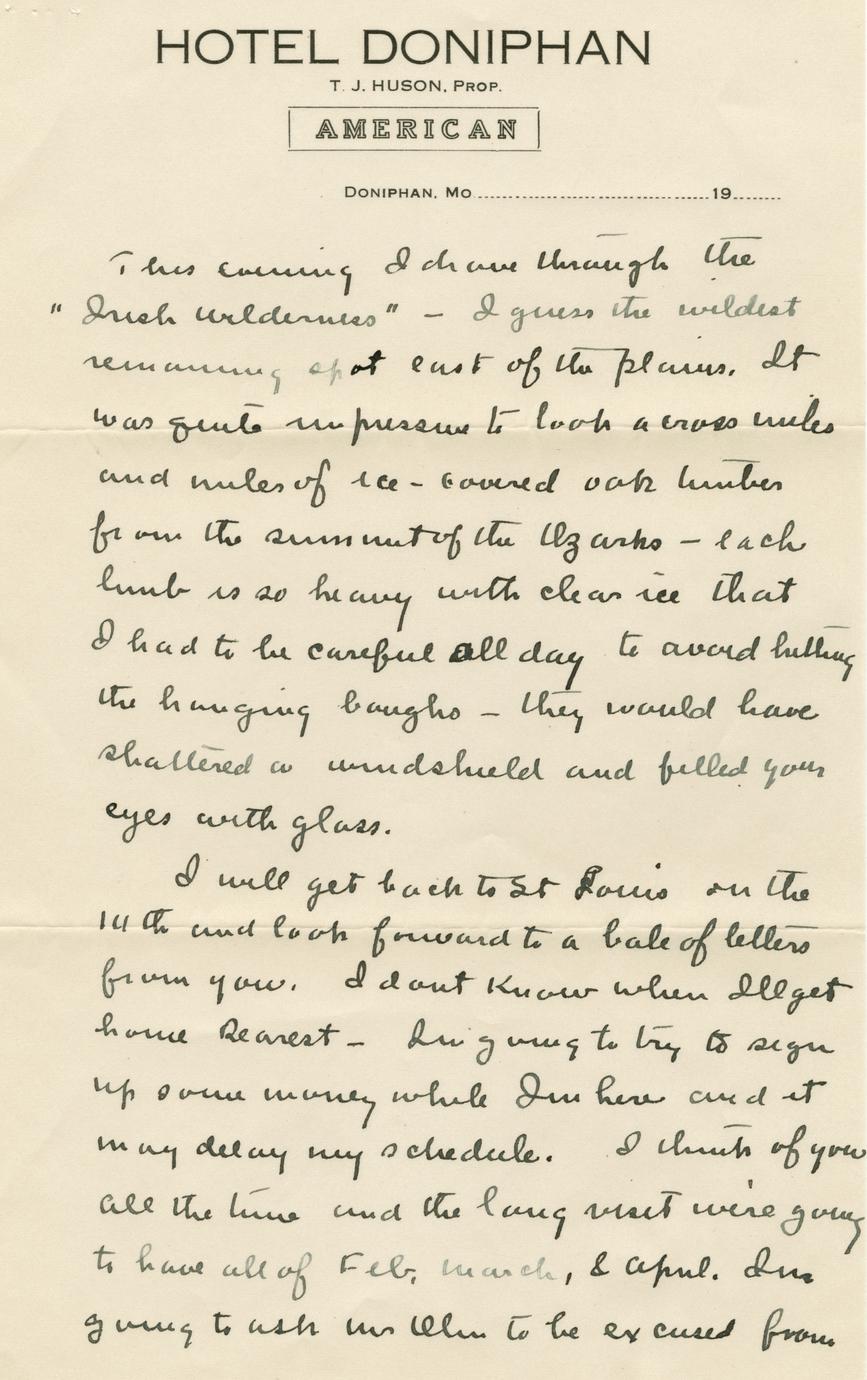 HOTEL DONIPHAN
T. J. HUSON, PROP.
AMERICAN
DONIPHAN, MO 19
This evening I drove through the
"Irish Wilderness" – I guess the wildest
remaining spot east of the plains. It
was quite impressive to look across miles
and miles of ice-covered oak timber
from the summit of the Ozarks – each
limb is so heavy with clear ice that
I had to be careful all day to avoid hitting
the hanging boughs – they would have
shattered a windshield and filled your
eyes with glass.
I will get back to St Louis on the
14th and look forward to a bale of letters
from you. I dont know when Ill get
home Dearest – Im going to try to sign
up some money while Im here and it
may delay my schedule. I think of you
all the time and the long visit we're going
to have all of Feb, March, & April. Im
going to ask Mr to be excused from